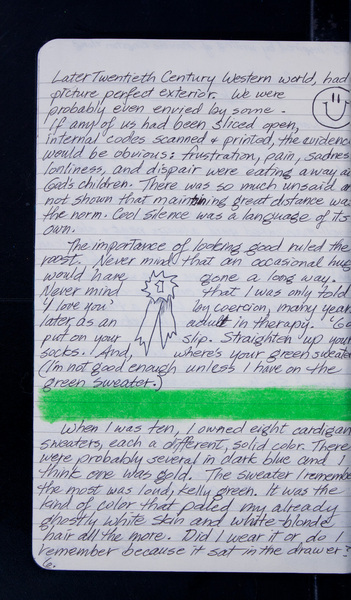 Later Twentieth Century Western world, had
picture perfect exterior. We were
probably even envied by some.
If any of us had been sliced open,
internal codes scanned & printed, the evidence
would be obvious: frustration, pain, sadnes
lonliness, and dispair were eating away a
God's children. There was so much unsaid a
not shown that maintining great distance wa
the norm. Cool silence was a language of its
own.
The importance of looking good ruled the
roost. Never mind that an occasional hug
would have gone a long way.
Never mind that I was only told
'I love you' by coercion, many year
later, as an adult in therapy. "Go
put on your slip. Straighten up your
socks. And, where's your green sweater
(I'm not good enough unless I have on the
green sweater.)
1
When I was ten, I owned eight cardigan
sweaters, each a different, solid color. There
were probably several in dark blue and I
think one was gold. The sweater I remembe
the most was loud, kelly green. It was the
kind of color that paled my already
ghostly white skin and white-blonde
hair all the more. Did I wear it or do I
remember because it sat in the drawer?
6.